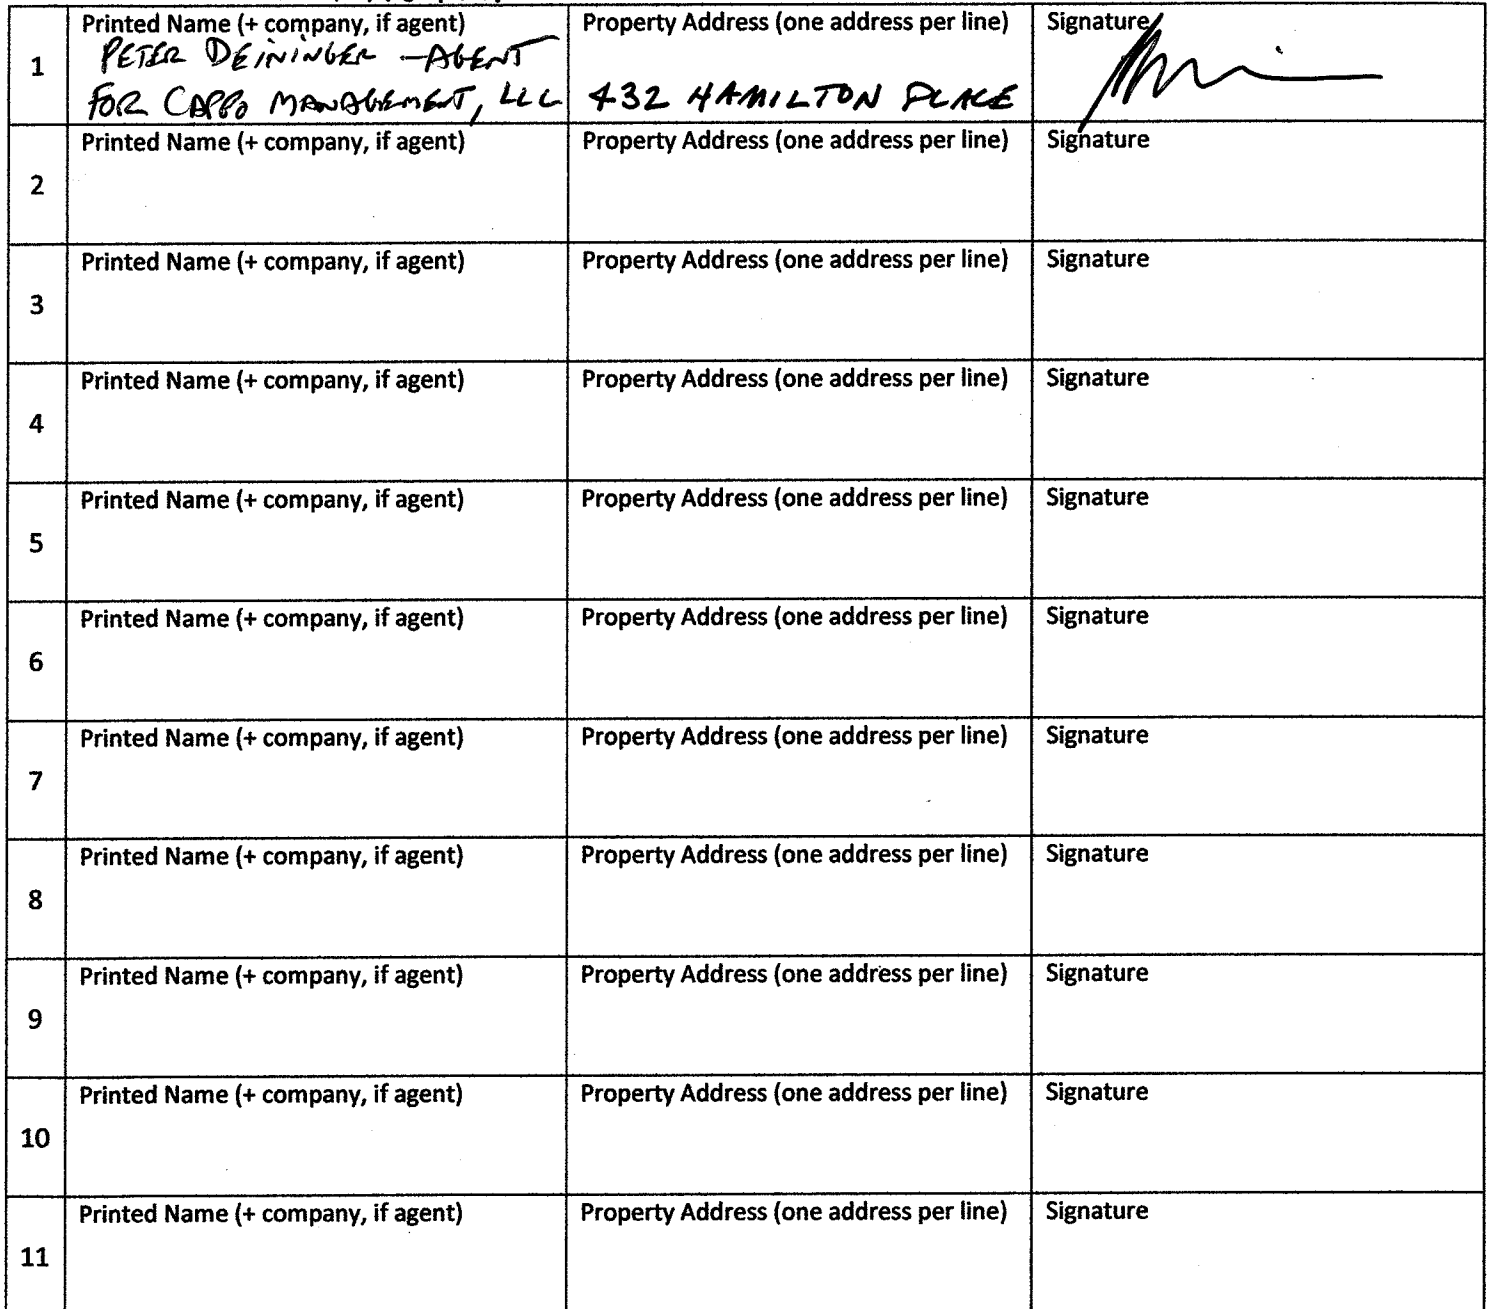 Printed Name (+ company, if agent) Property Address (one address per line) Signature
1 PETER DEININGER - AGENT
FOR CAPPO MANAGEMENT, LLC 432 HAMILTON PLACE
Printed Name (+ company, if agent) Property Address (one address per line) Signature
2
Printed Name (+ company, if agent) Property Address (one address per line) Signature
3
Printed Name (+ company, if agent) Property Address (one address per line) Signature
4
Printed Name (+ company, if agent) Property Address (one address per line) Signature
5
Printed Name (+ company, if agent) Property Address (one address per line) Signature
6
Printed Name (+ company, if agent) Property Address (one address per line) Signature
7
Printed Name (+ company, if agent) Property Address (one address per line) Signature
8
Printed Name (+ company, if agent) Property Address (one address per line) Signature
9
Printed Name (+ company, if agent) Property Address (one address per line) Signature
10
Printed Name (+ company, if agent) Property Address (one address per line) Signature
11